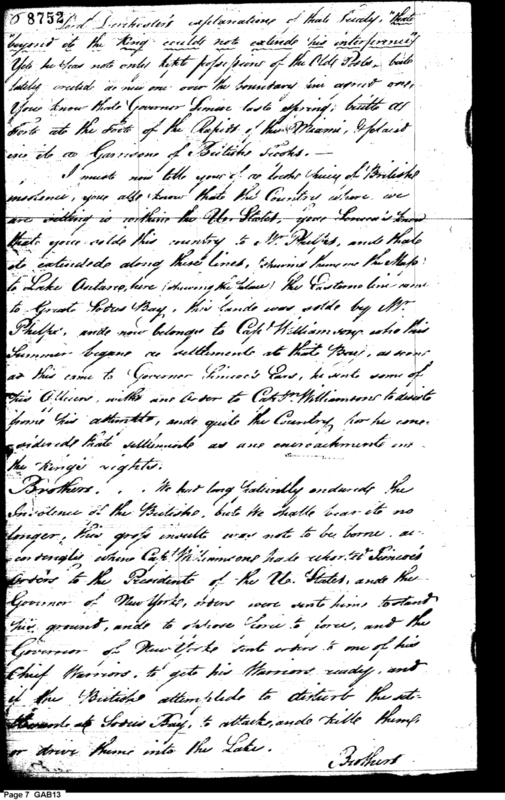 O 8752
Lord Dorchester's explanations of that treaty, "that
"beyond it the King could not extend his interference"
Yet he has not only kept possessions of the Old Posts, but
lately erected a new one over the boundary line agreed on,
You know that Governor Simcoe last spring, built a
Forte at the Foote of the Rapids of the Miami, & placed
in it a Garrison of British Troops. —
I must now tell you of a late piece of British
insolence, you all know that the Country where we
are sitting is within the Un. States, you Seneca's know
that you solde this country to Mr. Phelps, and that
it extended along these lines, (shewing them on the Map)
to Lake Ontario, here (shewing the place) the Eastern line came
to Great Sodus Bay, this lande was solde by Mr.
Phelps, and now belongs to Capt. Williamson, who this
Summer began a settlement at that Bay, as soon
as this came to Governor Simcoe's Ears, he sent some of
his Officers, with an order to Captn. Williamson to desist
from his attempts, and quit the Country, for he con-
sidered that settlement as an encroachment on
the King's rights.
Brothers. . . We had long patiently endured the
Insolence of the British, but We shall bear it no
longer, this gross insult was not to be borne. ac-
cordingly when Capt. Williamson made
Orders to the President of the Un. States, and the
Governor of New York, orders were sent him to stand
his ground, and to oppose force to force, and the
Governor of New York sent orders to one of his
Chief Warriors, to get his Warriors ready, and
if the British attempted to disturb the set-
tlement at Sodus Bay, to attack, and kill them,
or drive them into the Lake.
Brothers
Page 7 GAB13